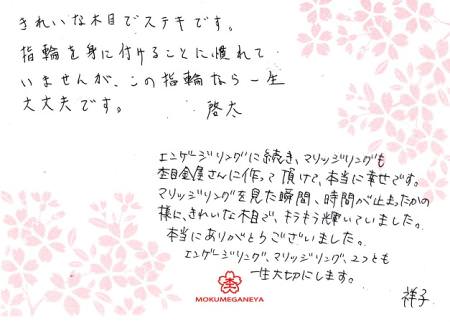 きれいな木目でステキです。
指輪を身に付けることに慣れて
いませんが、この指輪なら一生
大丈夫です。 啓太
エンゲージリングに続き、マリッジリングも
杢目金屋さんに作って頂けて、本当に幸せです。
マリッジリングを見た瞬間、時間が止まったかの
様に、きれいな木目で、キラキラ輝いていました。
本当にありがとうございました。
エンゲージリング、マリッジリング、2つとも
一生大切にします。
祥子
MOKUMEGANEYA